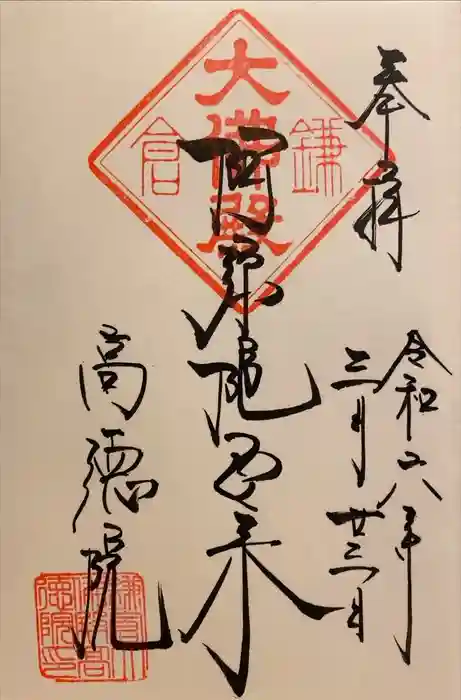 奉拝
令和六年
三月廿三日
阿弥陀如来
高徳院
鎌倉
大佛殿